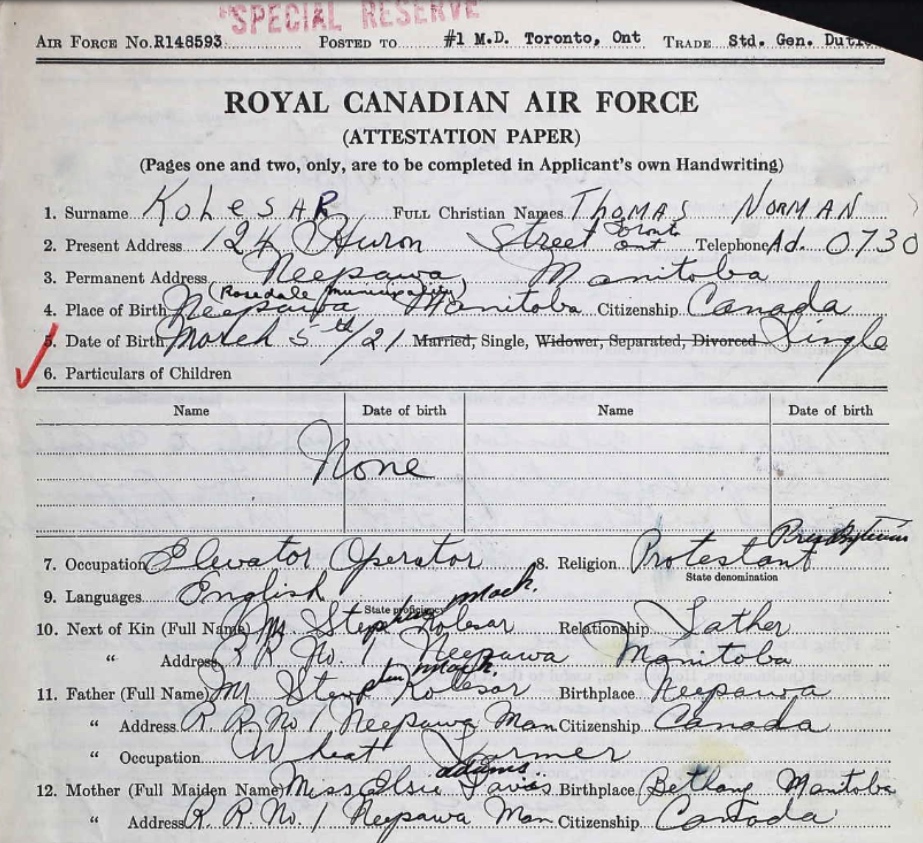 SPECIAL RESERVE
AIR FORCE NO. R148593 POSTED TO #1 M.D. Toronto, Ont TRADE Std. Gen.
ROYAL CANADIAN AIR FORCE
(ATTESTATION PAPER)
(Pages one and two, only, are to be completed in Applicant's own Handwriting)
1. Surname KoLeSAR FULL Christian Names THOMAS NORMAN
2. Present Address 124 Huron Street Toronto Ont Telephone Ad. 0730
3. Permanent Address Neepawa Manitoba
(Rosedale municipality)
4. Place of Birth Neepawa Manitoba Citizenship Canada
5. Date of Birth March 5th/21 Married, Single, Widower, Separated, Divorced Single
6. Particulars of Children
Name Date of birth Name Date of birth
None
7. Occupation Elevator Operator 8. Religion Protestant Presbyterian
State denomination
9. Languages English
State proficiency
10. Next of Kin (Full Name) Mr Stephen Mack. Kolesar Relationship Father
" Address R R No. 1 Neepawa Manitoba
11. Father (Full Name) Mr Stephen Mack. Kolesar Birthplace Neepawa
" Address R. R. No 1 Neepawa Man Citizenship Canada
" Occupation Wheat Farmer
adams
12. Mother (Full Maiden Name) Miss Elsie Davis Birthplace Bethany Manitoba
" Address R. R. No. 1 Neepawa Man Citizenship Canada